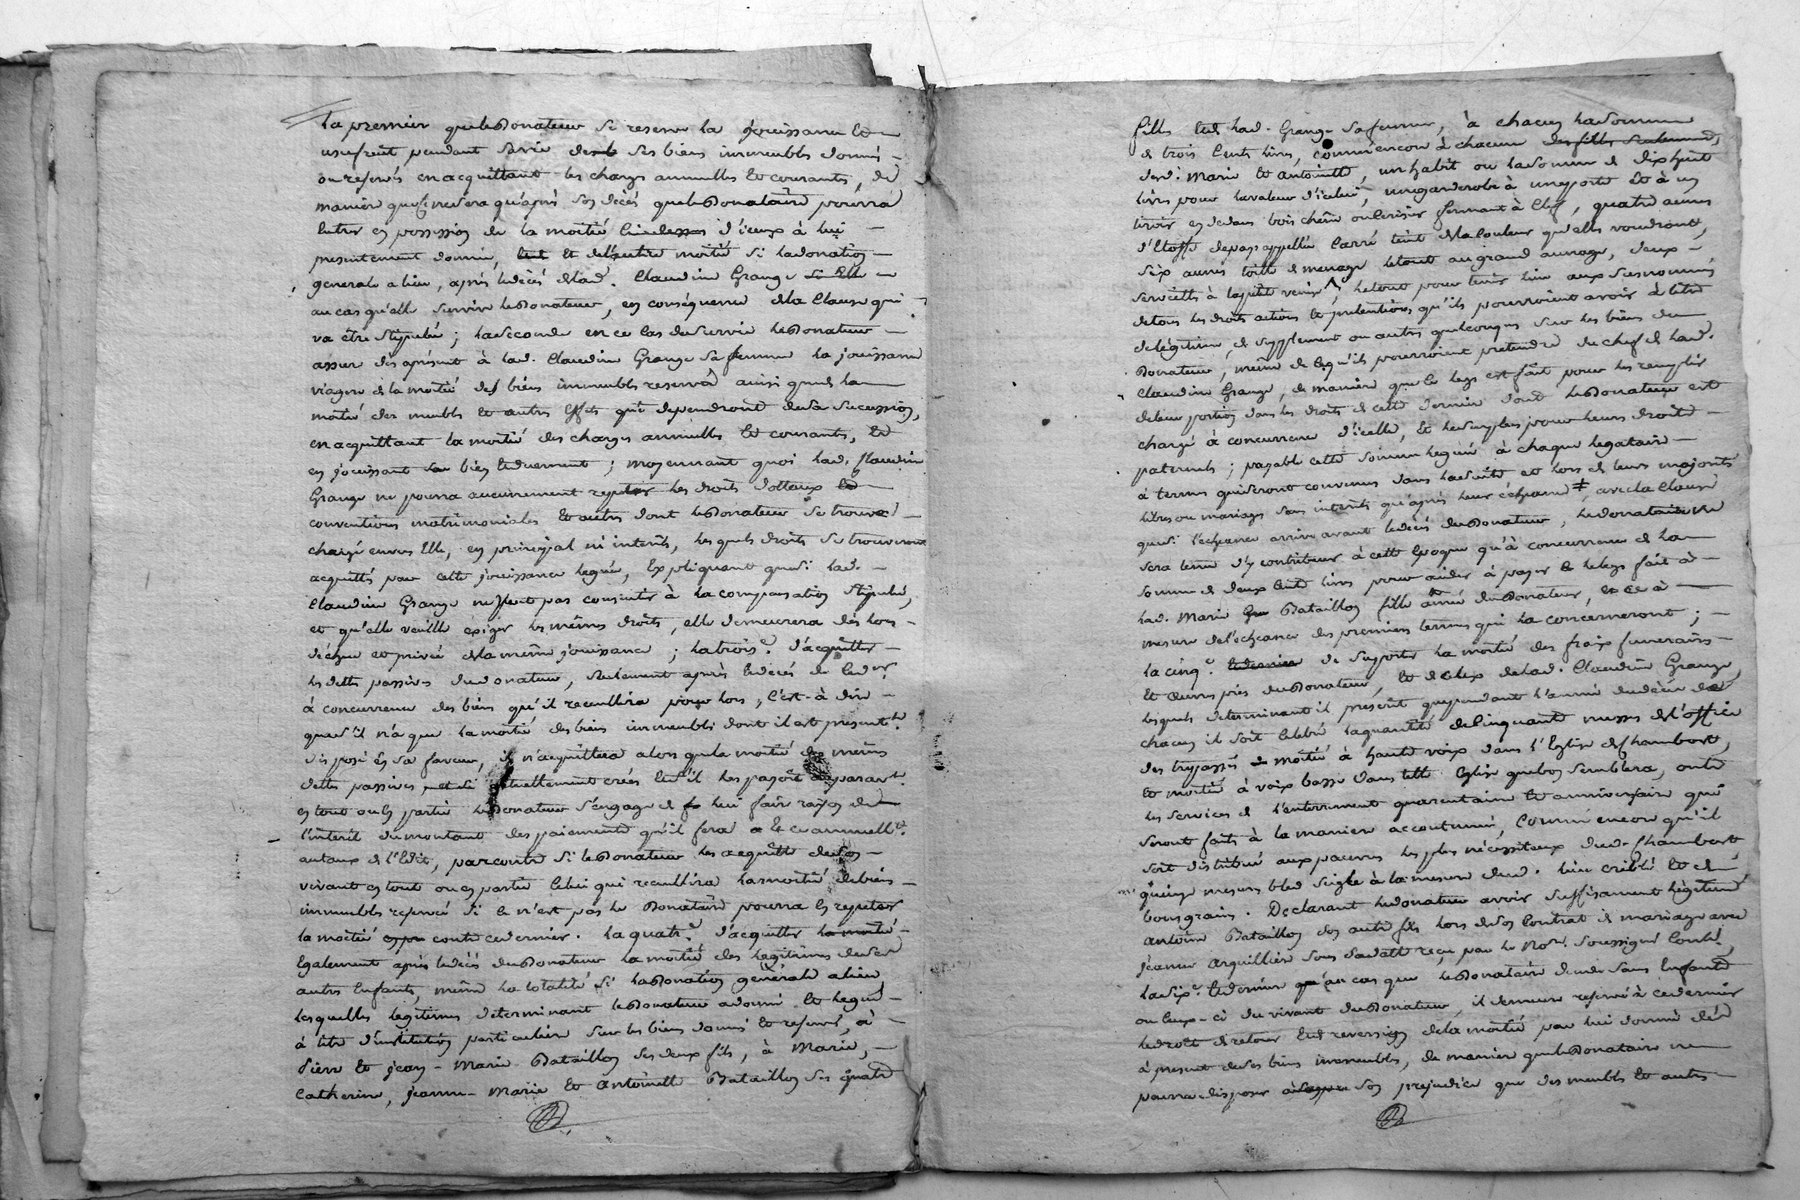 La premiere que le Donateur se reserve la jouissance et
usufruit pendant sa vie de ses biens immeubles donnés
ou reservés en acquittant les charges annuelles et courantes, de
maniere que ce ne sera qu'après son décès que le Donataire pourra
entrer en possession de la moitié d'iceux à lui
presentement donnée, et de l'autre moitié si la donation
generale a lieu, après le décès de lad. Claudine Grange
au cas qu'elle survive le Donateur, en conséquence de la Clause qui
va être stipulée ; la seconde en ce cas de survie le Donateur
assure dès àpresent à lad. Claudine Grange sa femme la jouissance
viagere de la moitié des biens immeubles reservés ainsi que de la
moitié des meubles et autres effets qui dependront de sa succession,
en acquittant la moitié des charges annuelles et courantes, et
en jouissant en bien ; moyennant quoi lad. Claudine
Grange ne pourra aucunement repeter les droits dottaux et
conventions matrimoniales et autres dont le Donateur se trouve
chargé envers Elle, en principal ni interêts, lesquels droits se trouveront
acquittés par cette jouissance leguée, Expliquant que si lad.
Claudine Grange ne veut pas consentir à la compensation stipulée,
et qu'elle veuille exiger les mêmes droits, elle demeurera dès lors
déchue et privée de la même jouissance ; la trois.e d'acquitter
les dettes passives du donateur, seulement après le décès de ced.er
à concurrence des biens qu'il recueillira pour lors, c'est-à dire
que s'il n'a que la moitié des biens immeubles dont il est present.t
disposé en sa faveur, il n'acquittera alors que la moitié des mêmes
dettes passives actuellement créés et s'il les payoit auparavant
en tout ou en partie le Donateur s'engage de lui faire raison de
l'interêt du montant des paiements qu'il fera et ce annuell.t
au taux de l'Edit, par contre si le Donateur les acquitte de son
vivant en tout ou en partie celui qui recueillira la moitié des biens
immeubles reservés si ce n'est pas le Donataire pourra en repeter
la moitié contre ce dernier. la quatr.e d'acquitter
Egalement après le décès du Donateur la moitié des légitimes de ses
autres Enfants, même la totalité si la Donation générale a lieu
lesquelles legitimes determinant le Donateur a donné et legué
à titre d'institution particuliere sur les biens donnés et reservés, à
Pierre et Jean-Marie Bataillon ses deux fils, à Marie,
Catherine, Jeanne-Marie et Antoinette Bataillon ses quatre
filles et de lad. Grange sa femme, à chacun la somme
de trois Cents livres, comme encore à chacune des filles seulement,
desd. Marie et Antoinette, un habit ou la somme de dix huit
livres pour la valeur d'icelui, une garderobe à une porte et à un
tiroir en dedans bois chêne ou cerisier fermant à Clef, quatre aunes
d'Etoffe de pays appellée Carré teint de la couleur qu'elles voudront,
six aunes toille de menage le tout au grand aunage, deux
serviettes à la petite venise, le tout pour tenir lieu aux susnommés
de tous les droits actions et pretentions qu'ils pourroient avoir à titre
de légitime, de supplement ou autres quelconques sur les biens du
Donateur, même de ce qu'ils pourroient pretendre du chef de lad.
Claudine Grange, de maniere que ce legs est fait pour les remplir
de leur portion dans les droits de cette derniere dont le Donateur est
chargé à concurrence d'icelle, et le surplus pour leurs droits
paternels ; payable cette somme leguée à chaque legataire
à termes qui seront convenus dans la suite et lors de leurs majorités
libres ou mariages sans interêts qu'après leur échéance, avec la clause
que si l'échéance arrive avant le décès du Donateur, le donataire ne
sera tenu d'y contribuer à cette Epoque qu'à concurrence de la
somme de deux Cents livres pour aider à payer le legs fait à
lad. Marie Bataillon fille ainée du Donateur, et ce à
mesure de l'échéance des premiers termes qui la concerneront ;
la cinq.e de supporter la moitié des fraix funeraires
et œuvres pies du Donateur, et de ceux de lad. Claudine Grange,
lesquels determinant il prescrit que pendant l'année du décès de
chacun il soit célébré la quantité de cinquante messes de l'office
des trepassés moitié à haute voix dans l'Eglise de Chambost,
et moitié à voix basse dans telle Eglise que bon semblera, outre
les services de l'enterrement quarantaine et anniversaire qui
seront faits à la maniere accoutumée, comme encore qu'il
soit distribué aux pauvres les plus nécessiteux dud. Chambost,
quinze mesures bled seigle à la mesure dud. lieu criblé et de
bons grains. Declarant le donateur avoir suffisament légitimé
Antoine Bataillon son autre fils lors de son Contrat de mariage avec
Jeanne Arquillière sous sa datte reçu par le No.re soussigné Contrôlé,
la six.e et derniere qu'au cas que le Donataire decede sans Enfants
ou ceux-ci du vivant du Donateur, il demeure reservé à ce dernier
le droit de retour et de reversion de la moitié par lui donnée dès
à present de ses biens immeubles, de maniere que le Donataire ne
pourra disposer à son prejudice que des meubles et autres